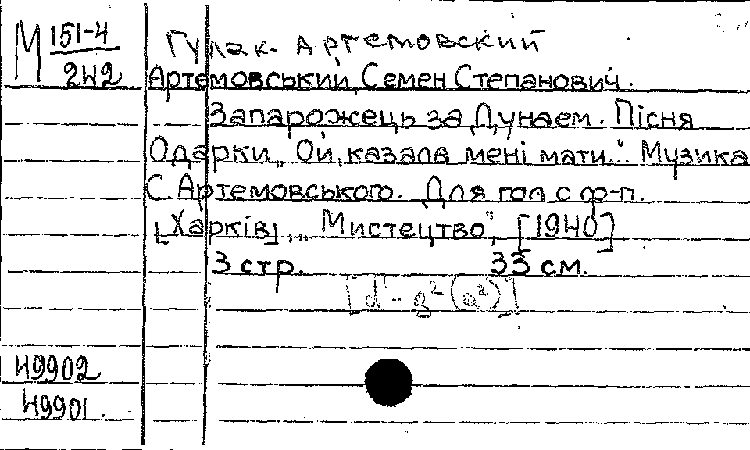 М 151-4
242
Гулак-Артемовский
Артемовський, Семен Степанович.
Запарожець за Дунаем. Пісня
Одарки „Ой, казала мені мати." Музика
С. Артемовського. Для гол с ф-п.
[Харків], „Мистецтво", [1940]
3 стр. 33 см.
[d' - g² (a²)]
49902
49901.